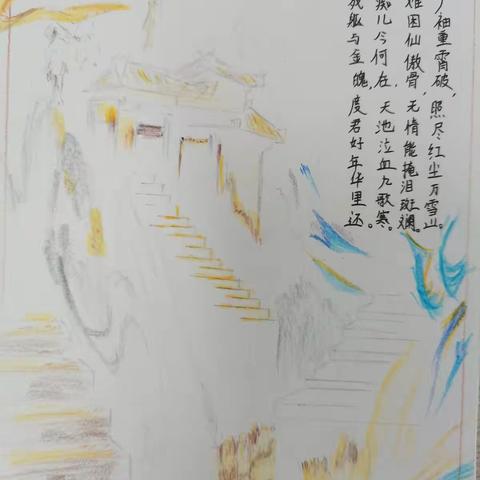 袖重霄破，照尽红尘万雪山。
难困仙傲骨，无情能掩泪斑斓。
痴儿今何在，天池泣血九歌寒。
残躯与金魄，度君好年华里还。